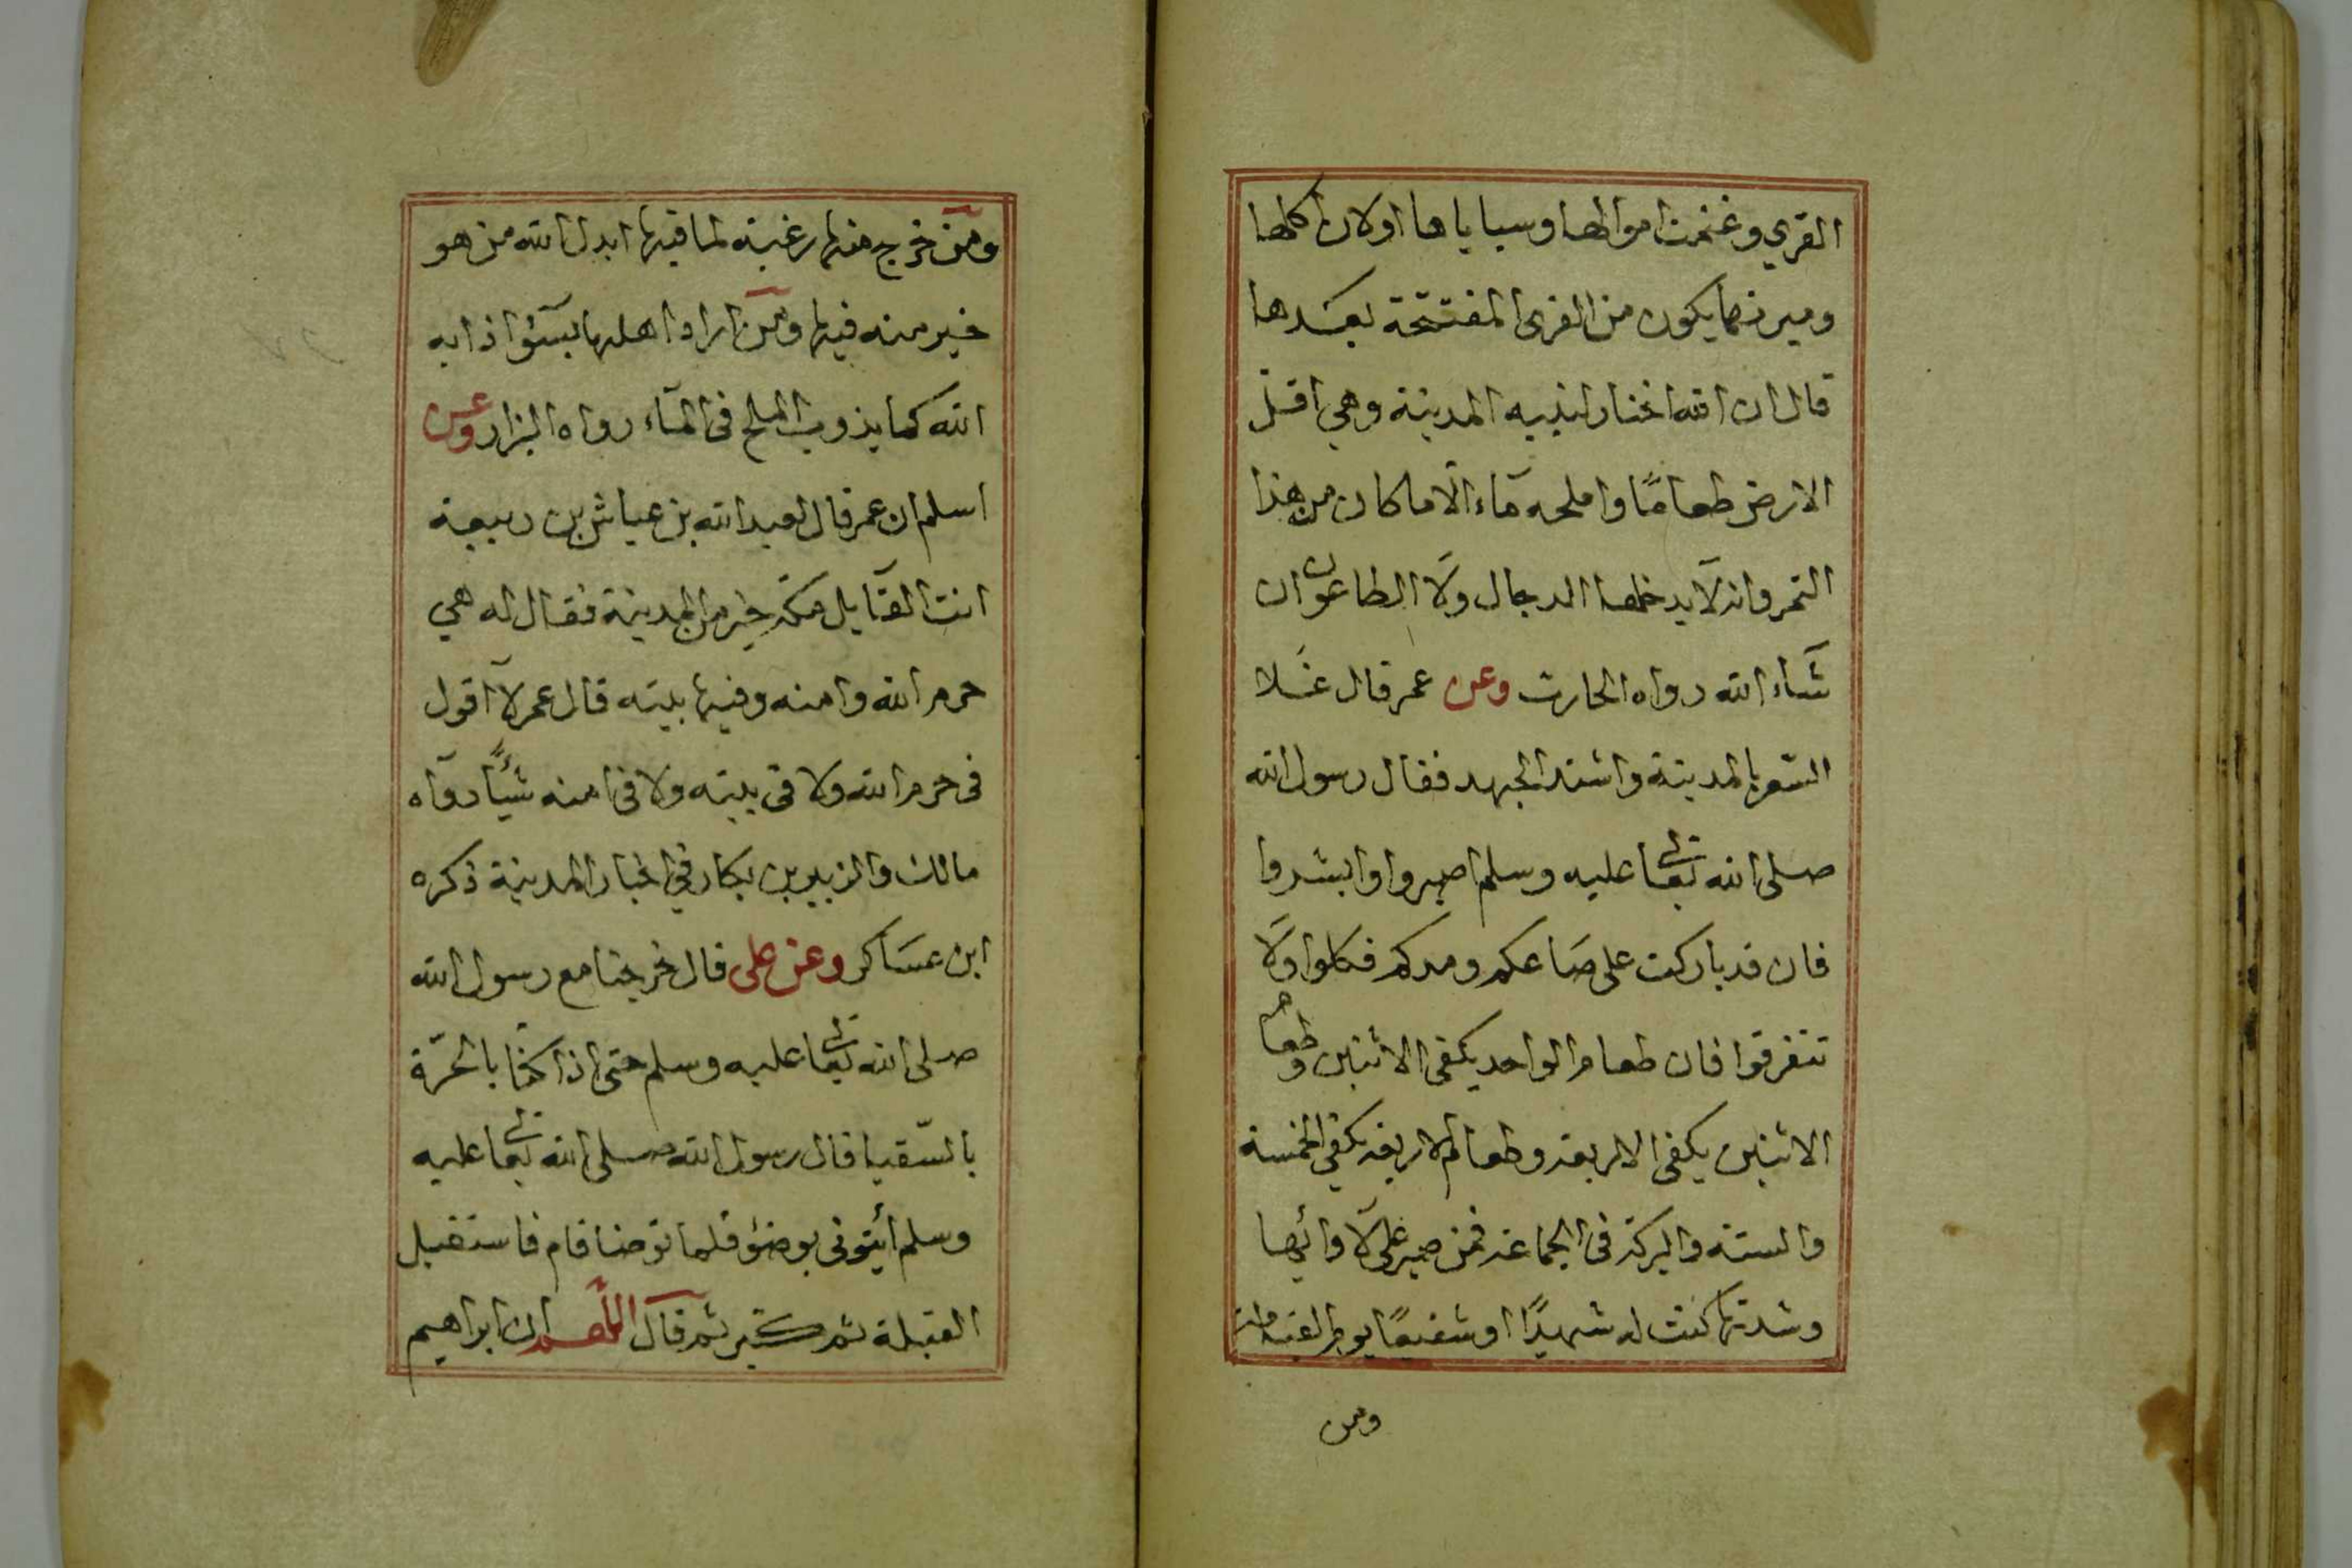 القري وغنمت اموالها وسباياها اولان اكلها
وميرتها يكون من القرى المفتتحة بعدها
قال ان الله اختار لنبيه المدينة وهي اقل
الارض طعامًا واملحه ماء الا ما كان من هذا
التمر وانه لا يدخلها الدجال ولا الطاعون ان
شاء الله رواه الحارث وعن عمر قال غلا
السعر بالمدينة واشتد الجهد فقال رسول الله
صلى الله تعالى عليه وسلم اصبروا وابشروا
فان قد باركت على صاعكم ومدكم فكلوا ولا
تتفرقوا فان طعام الواحد يكفى الاثنين وطعام
الاثنين يكفى الاربعة وطعام الاربعة يكفى الخمسة
والستة والبركة فى الجماعة فمن صبر على لاوائها
وشدتها كنت له شهيدًا او شفيعًا يوم القيمة
ومن
ومن خرج منها رغبة لما فيها ابدل الله من هو
خير منه فيها ومن اراد اهلها بسوء اذابه
الله كما يذوب الملح فى الماء رواه البزار وعن
اسلم ان عمر قال لعبد الله بن عياش بن ربيعة
انت القايل مكة خير من المدينة فقال له هي
حرم الله وامنه وفيها بيته قال عمر لا اقول
فى حرم الله ولا فى بيته ولا فى امنه شيئًا رواه
مالك والزبير بن بكار في اخبار المدينة ذكره
ابن عساكر وعن على قال خرجنا مع رسول الله
صلى الله تعالى عليه وسلم حتى اذا كنا بالحرّة
بالسّقيا قال رسول الله صلى الله تعالى عليه
وسلم أيتونى بوضوء فلما توضأ قام فاستقبل
القبلة ثم كبر ثم قال اللهم ان ابراهيم